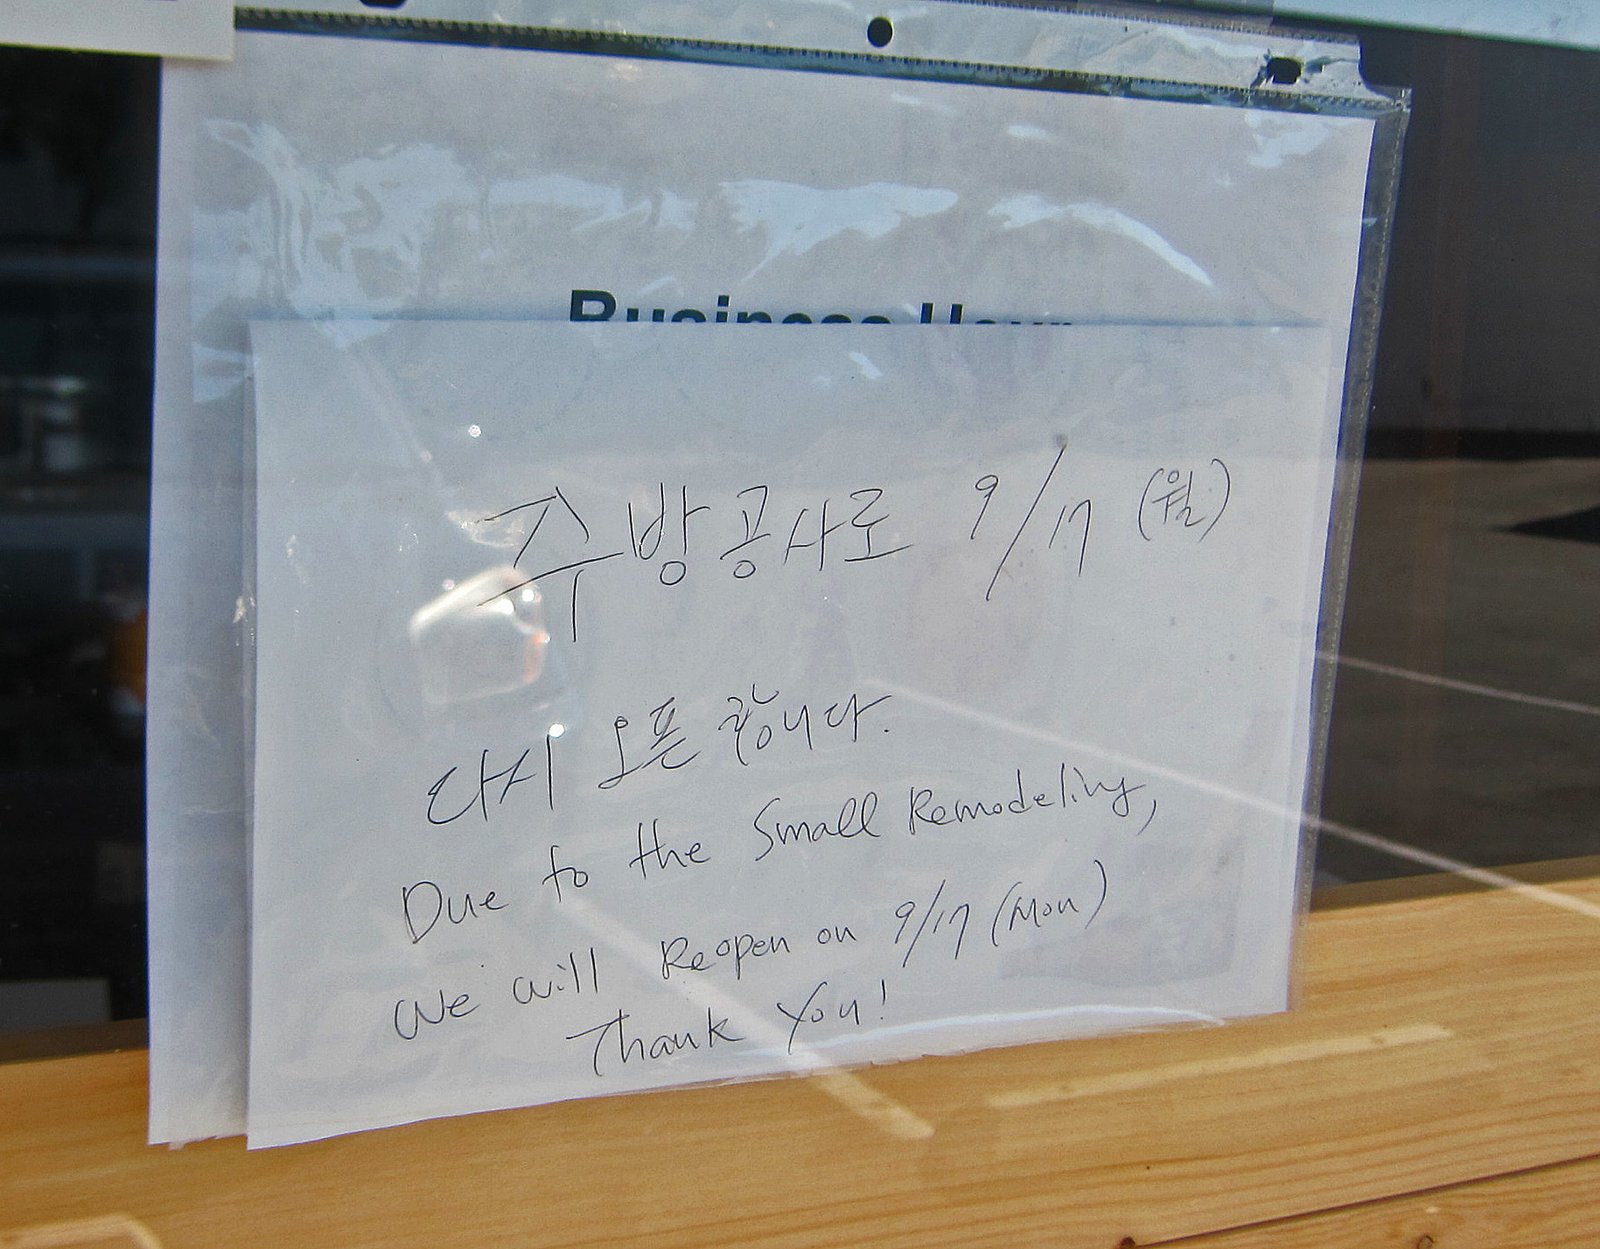 Business Hour
주방공사로 9/17 (월)
다시 오픈 합니다.
Due to the Small Remodeling,
We will Reopen on 9/17 (Mon)
Thank You!